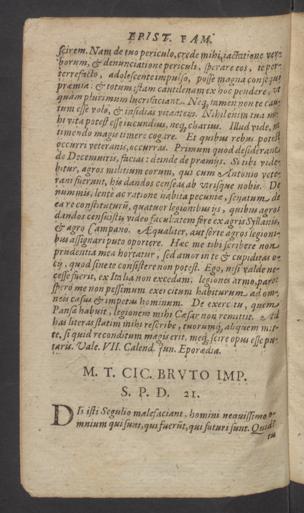 EPIST. FAM.
scirem. Nam de tuo periculo, crede mihi, iactatione ver-
borum, & denunciatione periculi, sperare eos, te per-
terrefacto, adolescente impulso, posse magna consequi
præmia: & totum istam cantilenam ex hoc pendere, vt
quàm plurimum lucrifaciant. Neq; tamen non te cau-
tum esse volo, & insidias vitantem. Nihil enim tua mi-
hi vita potest esse iucundius, neq; charius. Illud vide, ne
timendo magis timere cogare. Et quibus rebus potest
occurri veteranis, occurras. Primum quod desiderant
de Decemuiris, facias: deinde de præmijs. Si tibi vide-
bitur, agros militum eorum, qui cum Antonio vete-
rani fuerint, his dandos censeas ab vtrisque nobis. De
nummis, lentè ac ratione habita pecuniæ, senatum de
ea re constituturū, quatuor legionibus ijs, quibus agros
dandos censuistis, video facultatem fore ex agris Syllanis,
& agro Campano. Æqualiter, aut sorte agros legioni-
bus assignari puto oportere. Hæc me tibi scribere non
prudentia mea hortatur, sed amor in te & cupiditas o-
tij, quod sine te consistere non potest. Ego, nisi valde ne-
cesse fuerit, ex Italia non excedam: legiones armo, paro:
spero me non pessimum exercitum habiturum ad om-
neis casus & impetus hominum. De exercitu, quem
Pansa habuit, legionem mihi Cæsar non remittit. Ad
has literas statim mihi rescribe, tuorumq; aliquem mit-
te, si quid reconditum magis erit, meq; scire opus esse pu-
taris. Vale. VII. Calend. Iun. Eporædia.
M. T. CIC. BRVTO IMP.
S. P. D. 21.
DIi isti Segulio malefaciant, homini nequissimo o-
mnium qui sunt, qui fuerūt, qui futuri sunt. Quid?
tu